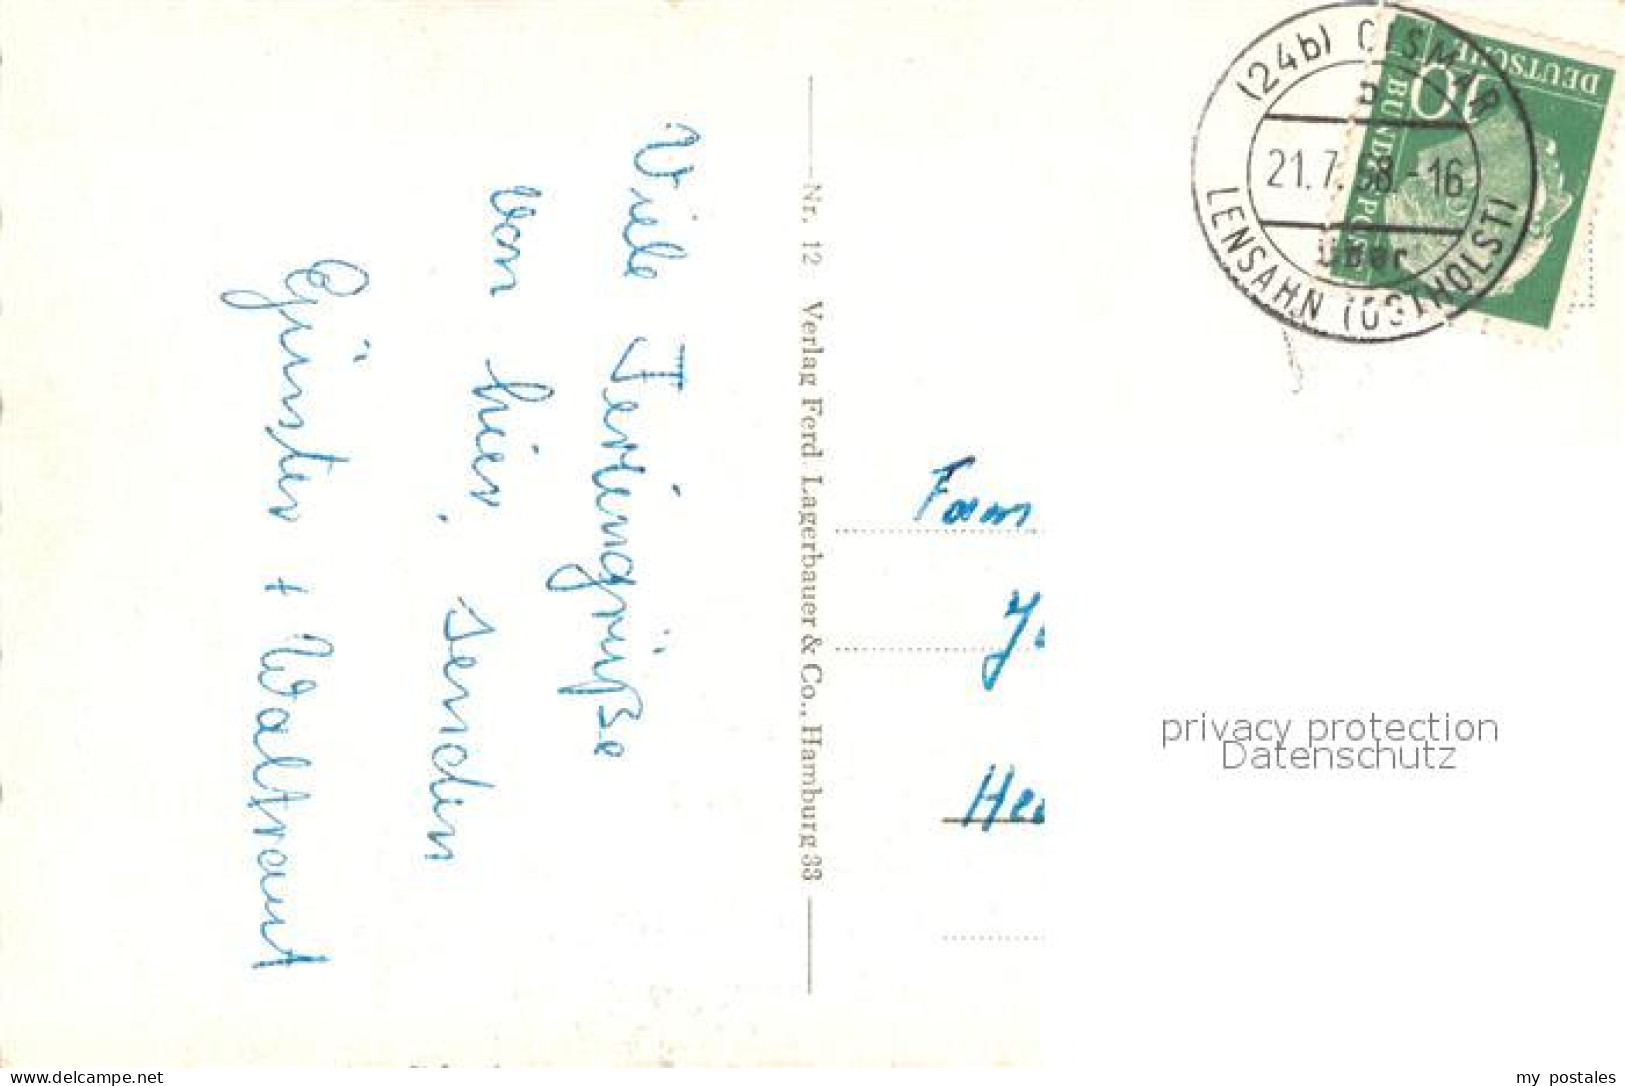 Viele Feriengrüße
von hier, senden
Günter + Waltraut
Nr. 12 Verlag Ferd. Lagerbauer & Co., Hamburg 33
(24b) CISMAR
21.7.58.-16
über
LENSAHN (OSTHOLST)
10
DEUTSCHE
BUNDESPOST
Fam
privacy protection
Datenschutz
www.delcampe.net
my_postales